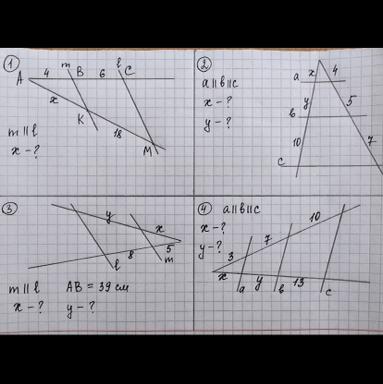 1
m B 6 l C
A 4
x
K 18
M
m || l
x - ?
2
a || b || c
x - ?
y - ?
a x 4
b y 5
10 7
c
3
y x
8 5
l m
m || l AB = 39 см
x - ? y - ?
4 a || b || c
x - ?
y - ?
3 7 10
x y 13
a b c